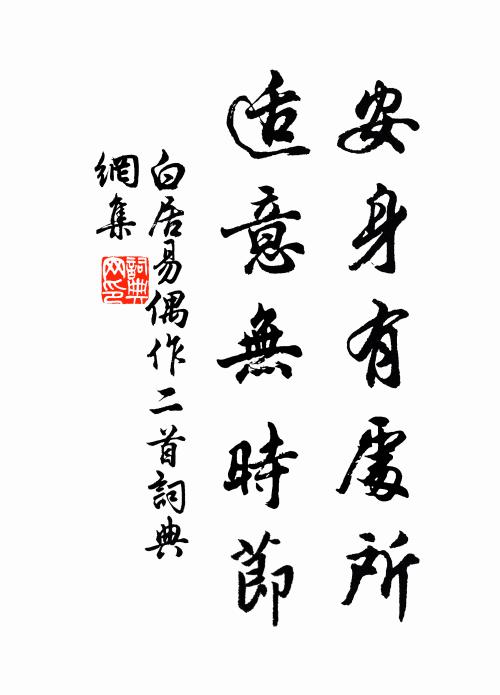 安身有處所
适意無時節
白居易偶作二首詞典
網集
詞典
网印